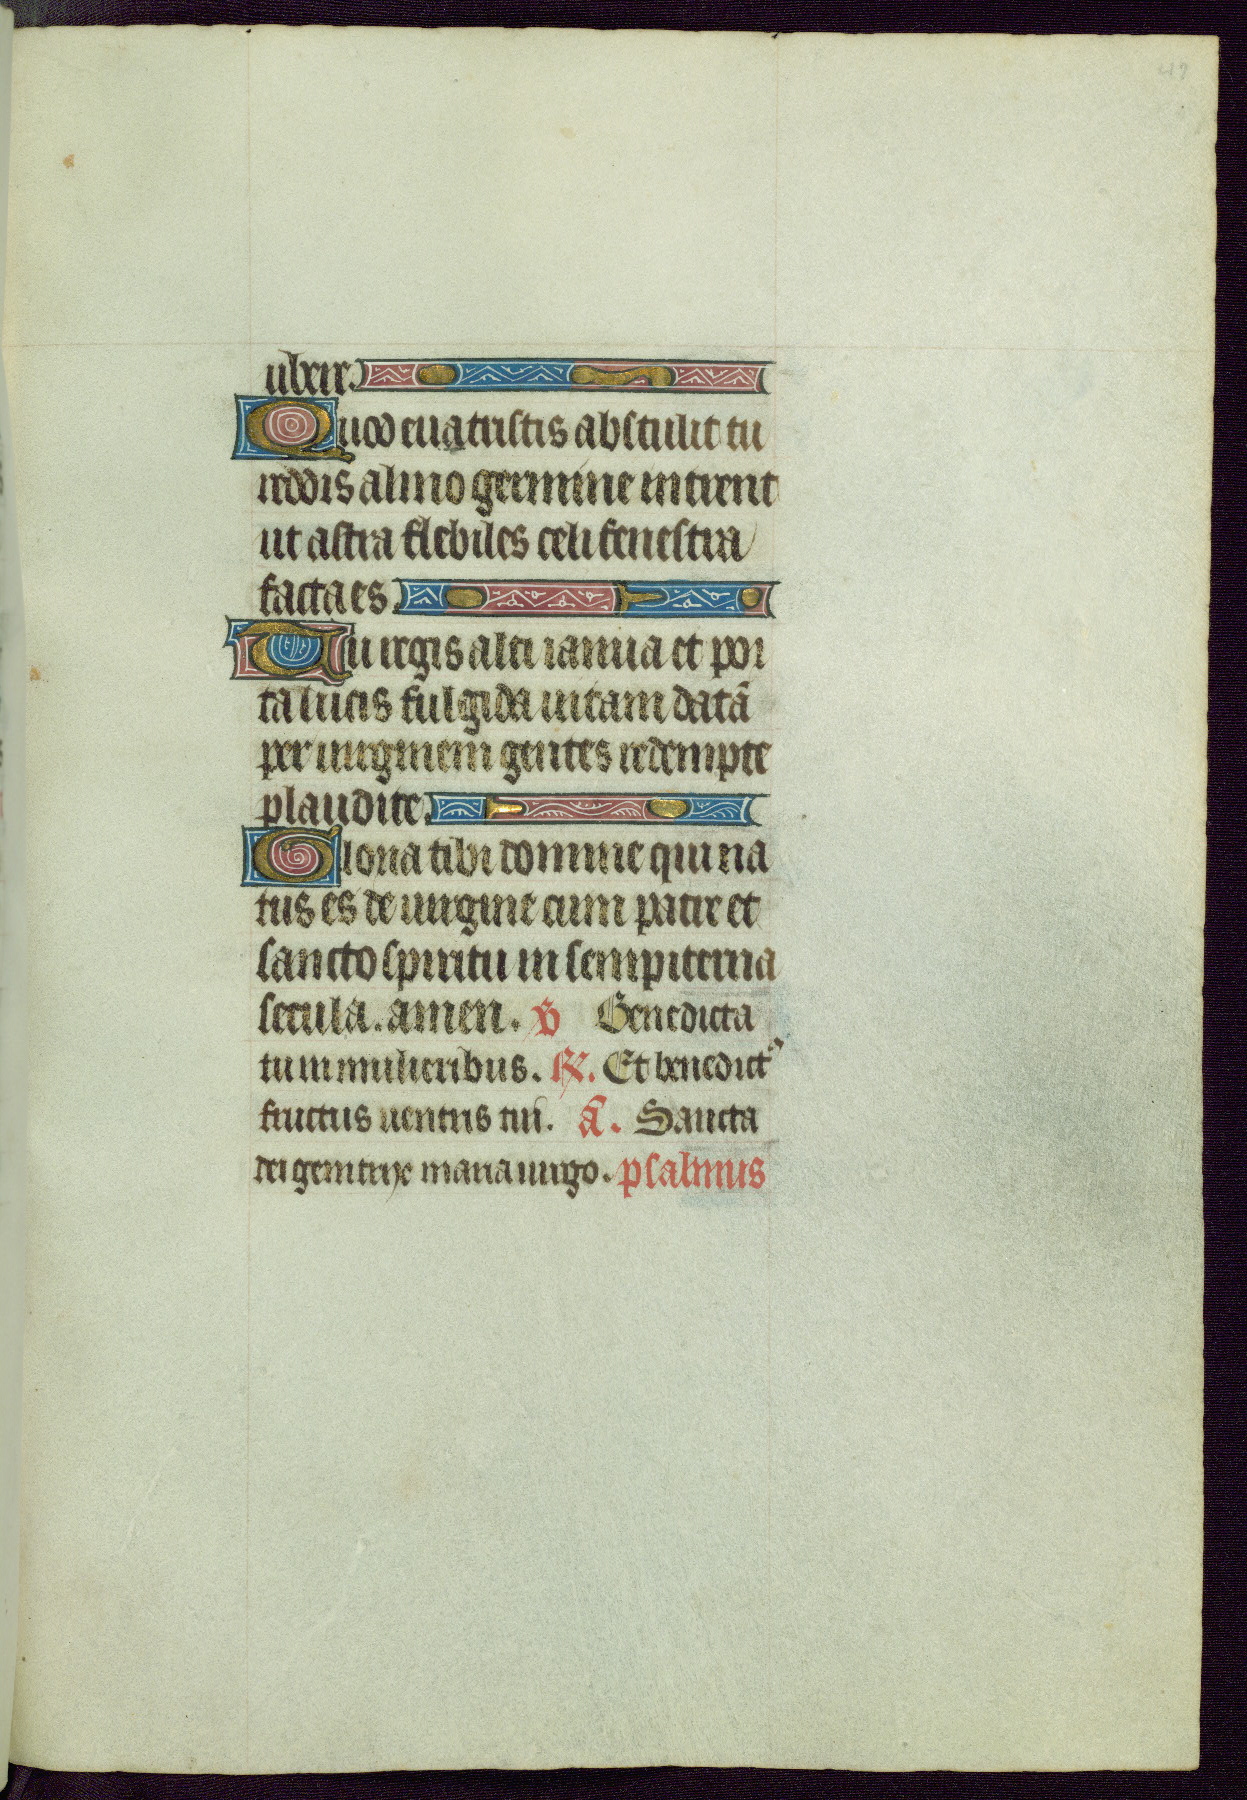 ubere.
Quod eua tristis abstulit tu
reddis almo germine intrent
ut astra flebiles celi fenestra
facta es.
Tu regis alti ianua et por
ta lucis fulgida uitam datā
per uirginem gentes redempte
plaudite.
Gloria tibi domine qui na
tus es de uirgine cum patre et
sancto spiritu in sempiterna
secula. amen. ℣ Benedicta
tu in mulieribus. ℟. Et benedictꝰ
fructus uentris tui. ā. Sancta
dei genitrix maria uirgo. psalmus